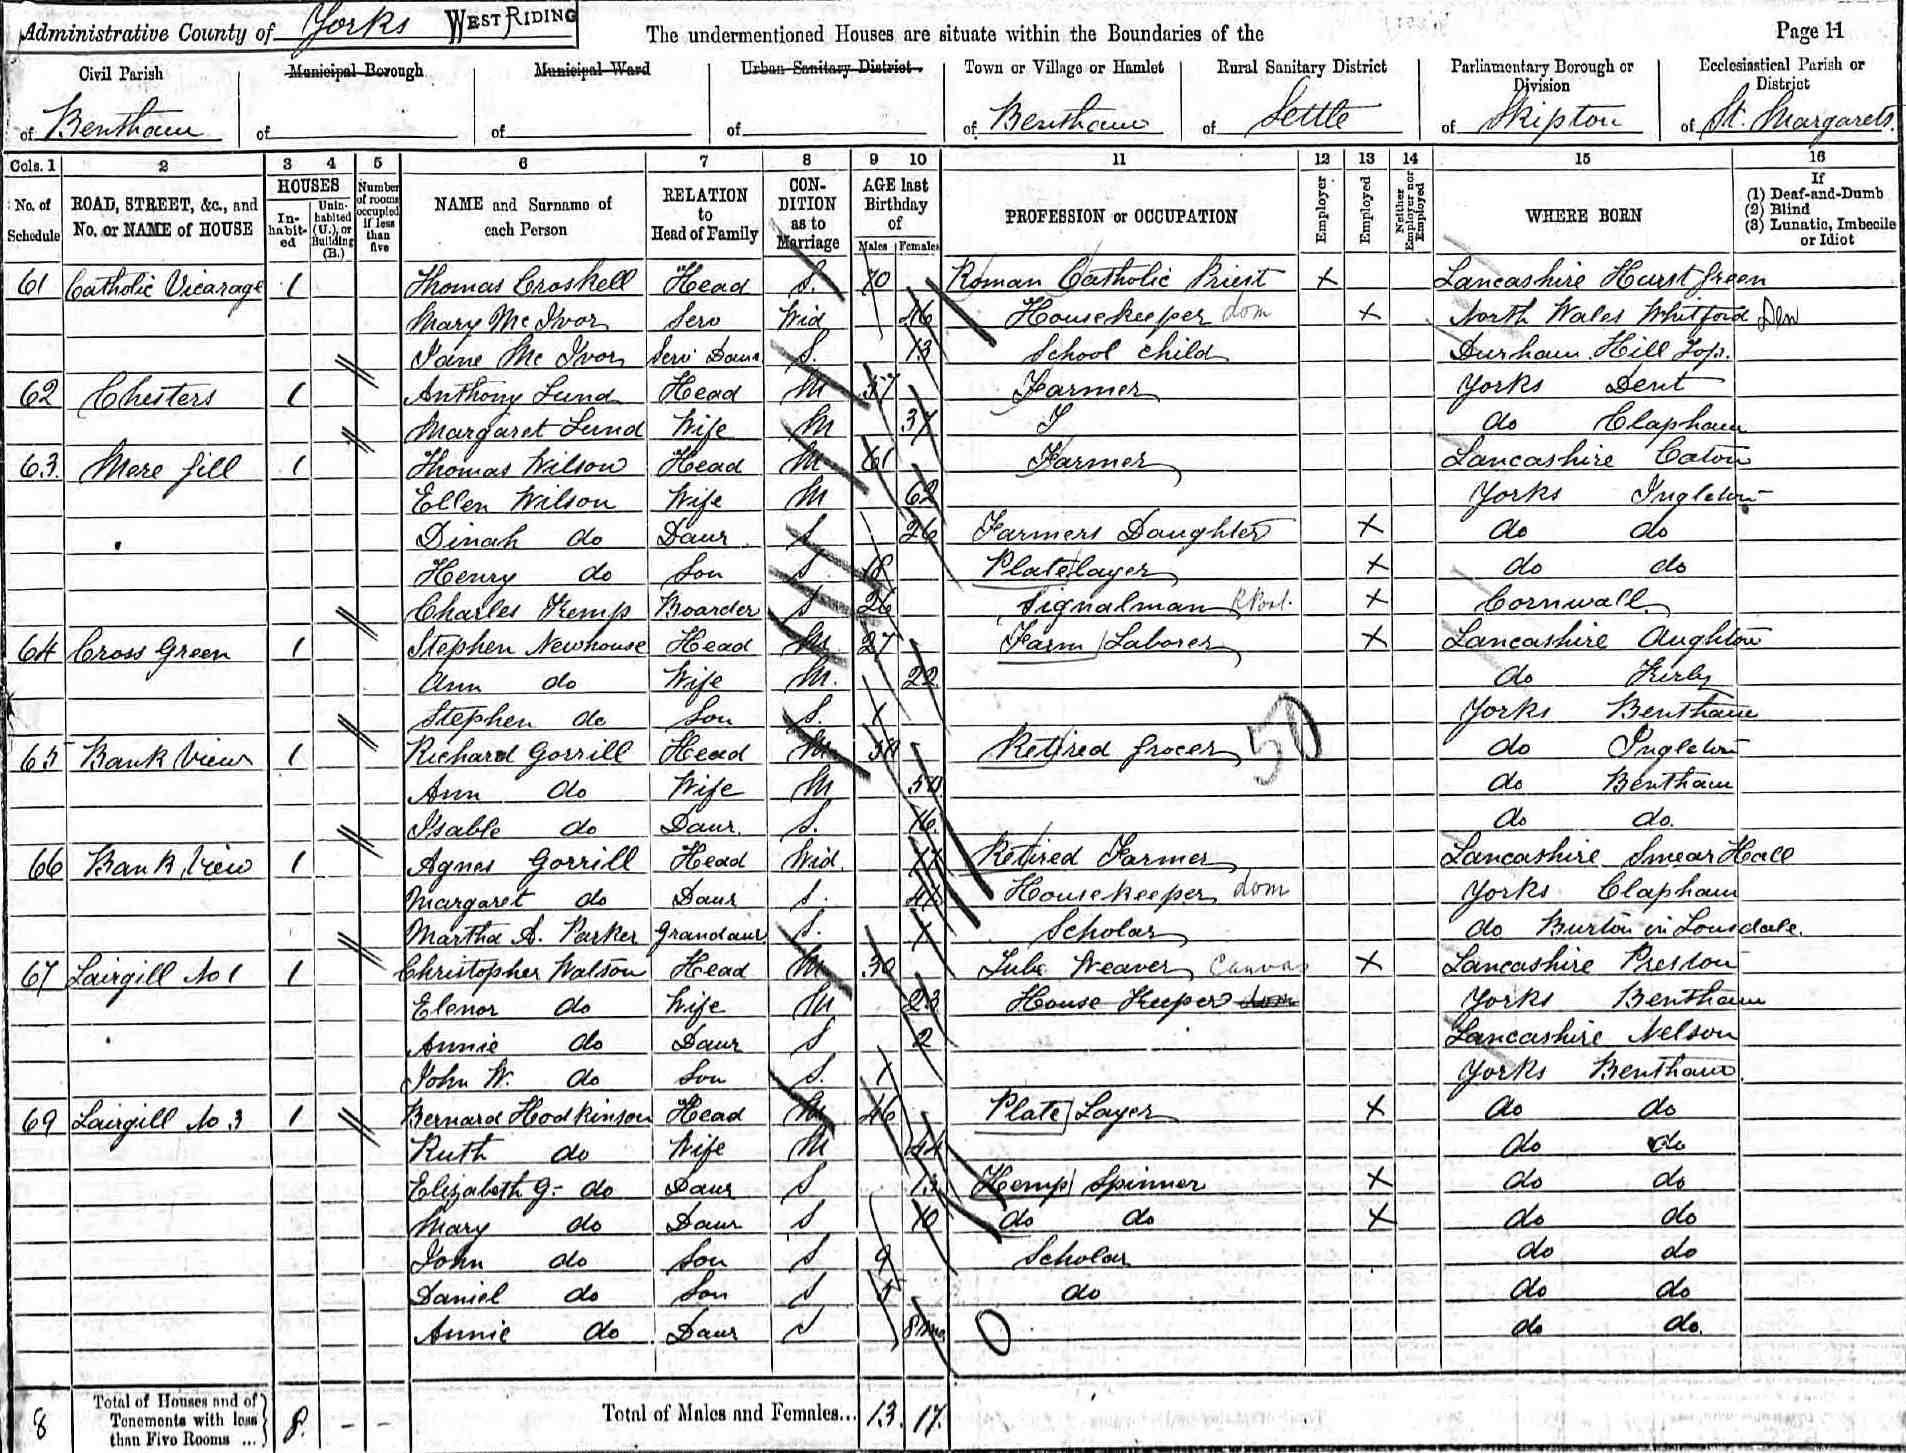 Administrative County of Yorks WEST RIDING The undermentioned Houses are situate within the Boundaries of the Page 11
Civil Parish Municipal Borough Municipal Ward Urban Sanitary District Town or Village or Hamlet Rural Sanitary District Parliamentary Borough or Division Ecclesiastical Parish or District
of Bentham of of of of Bentham of Settle of Skipton of St. Margarets
Cols. 1 2 3 4 5 6 7 8 9 10 11 12 13 14 15 16
No. of Schedule ROAD, STREET, &c., and No. or NAME of HOUSE HOUSES In-habit-ed Unin-habited (U.), or Building (B.) Number of rooms occupied if less than five NAME and Surname of each Person RELATION to Head of Family CON-DITION as to Marriage AGE last Birthday of Males Females PROFESSION or OCCUPATION Employer Employed Neither Employer nor Employed WHERE BORN If (1) Deaf-and-Dumb (2) Blind (3) Lunatic, Imbecile or Idiot
61 Catholic Vicarage 1 Thomas Croskell Head S. 70 Roman Catholic Priest X Lancashire Hurst Green
Mary Mc Ivor Serv Wid 46 Housekeeper dom X North Wales Whitford Den
Jane Mc Ivor Serv Daur S. 13 School child Durham Hill Top.
62 Chesters 1 Anthony Lund Head M 57 Farmer Yorks Dent
Margaret Lund Wife M 37 do Clapham
63 Mere Gill 1 Thomas Wilson Head M 61 Farmer Lancashire Caton
Ellen Wilson Wife M 62 Yorks Ingleton
Dinah do Daur S 26 Farmers Daughter X do do
Henry do Son S. 18 Plate layer X do do
Charles Kemp Boarder S 26 Signalman X Cornwall
64 Cross Green 1 Stephen Newhouse Head M 27 Farm Laborer X Lancashire Aughton
Ann do Wife M. 22 do Kirby
Stephen do Son S. 1 Yorks Bentham
65 Bank View 1 Richard Gorrill Head M Retired Grocer 50 do Ingleton
Ann do Wife M 50 do Bentham
Isable do Daur. S. 16 do do.
66 Bank View 1 Agnes Gorrill Head Wid. 77 Retired Farmer Lancashire Smear Hall
Margaret do Daur S. Housekeeper dom Yorks Clapham
Martha A. Parker Grandaur S. Scholar do Burton in Lonsdale.
67 Lairgill No 1 1 Christopher Watson Head M 30 Tube Weaver Canvas X Lancashire Preston
Elenor do Wife M 23 House Keeper dom Yorks Bentham
Annie do Daur S 2 Lancashire Nelson
John W. do Son S. 1 Yorks Bentham
69 Lairgill No 3 1 Bernard Hodkinson Head M 46 Plate Layer X do do
Ruth do Wife M 44 do do
Elizabeth G. do Daur S 13 Hemp Spinner X do do
Mary do Daur S 10 do do X do do
John do Son S 9 Scholar do do
Daniel do Son S 5 do do do
Annie do Daur S 8 mo 0 do do.
8 Total of Houses and of Tenements with less than Five Rooms ... 8. - - Total of Males and Females... 13. 17.